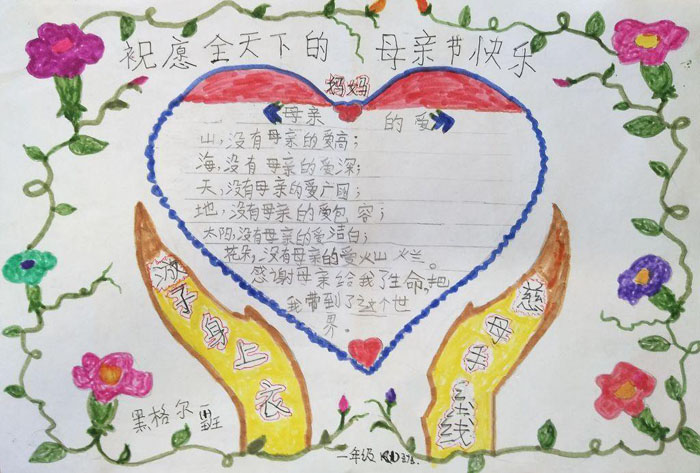 祝愿全天下的
母亲节快乐
妈妈
母亲的爱
山,没有母亲的爱高;
海,没有母亲的爱深;
天,没有母亲的爱广阔;
地,没有母亲的爱包容;
太阳,没有母亲的爱洁白;
花朵,没有母亲的爱火山烂。
感谢母亲给我了生命,把
我带到了这个世
界。
慈母手
线
子身上衣
黑格尔
一年级